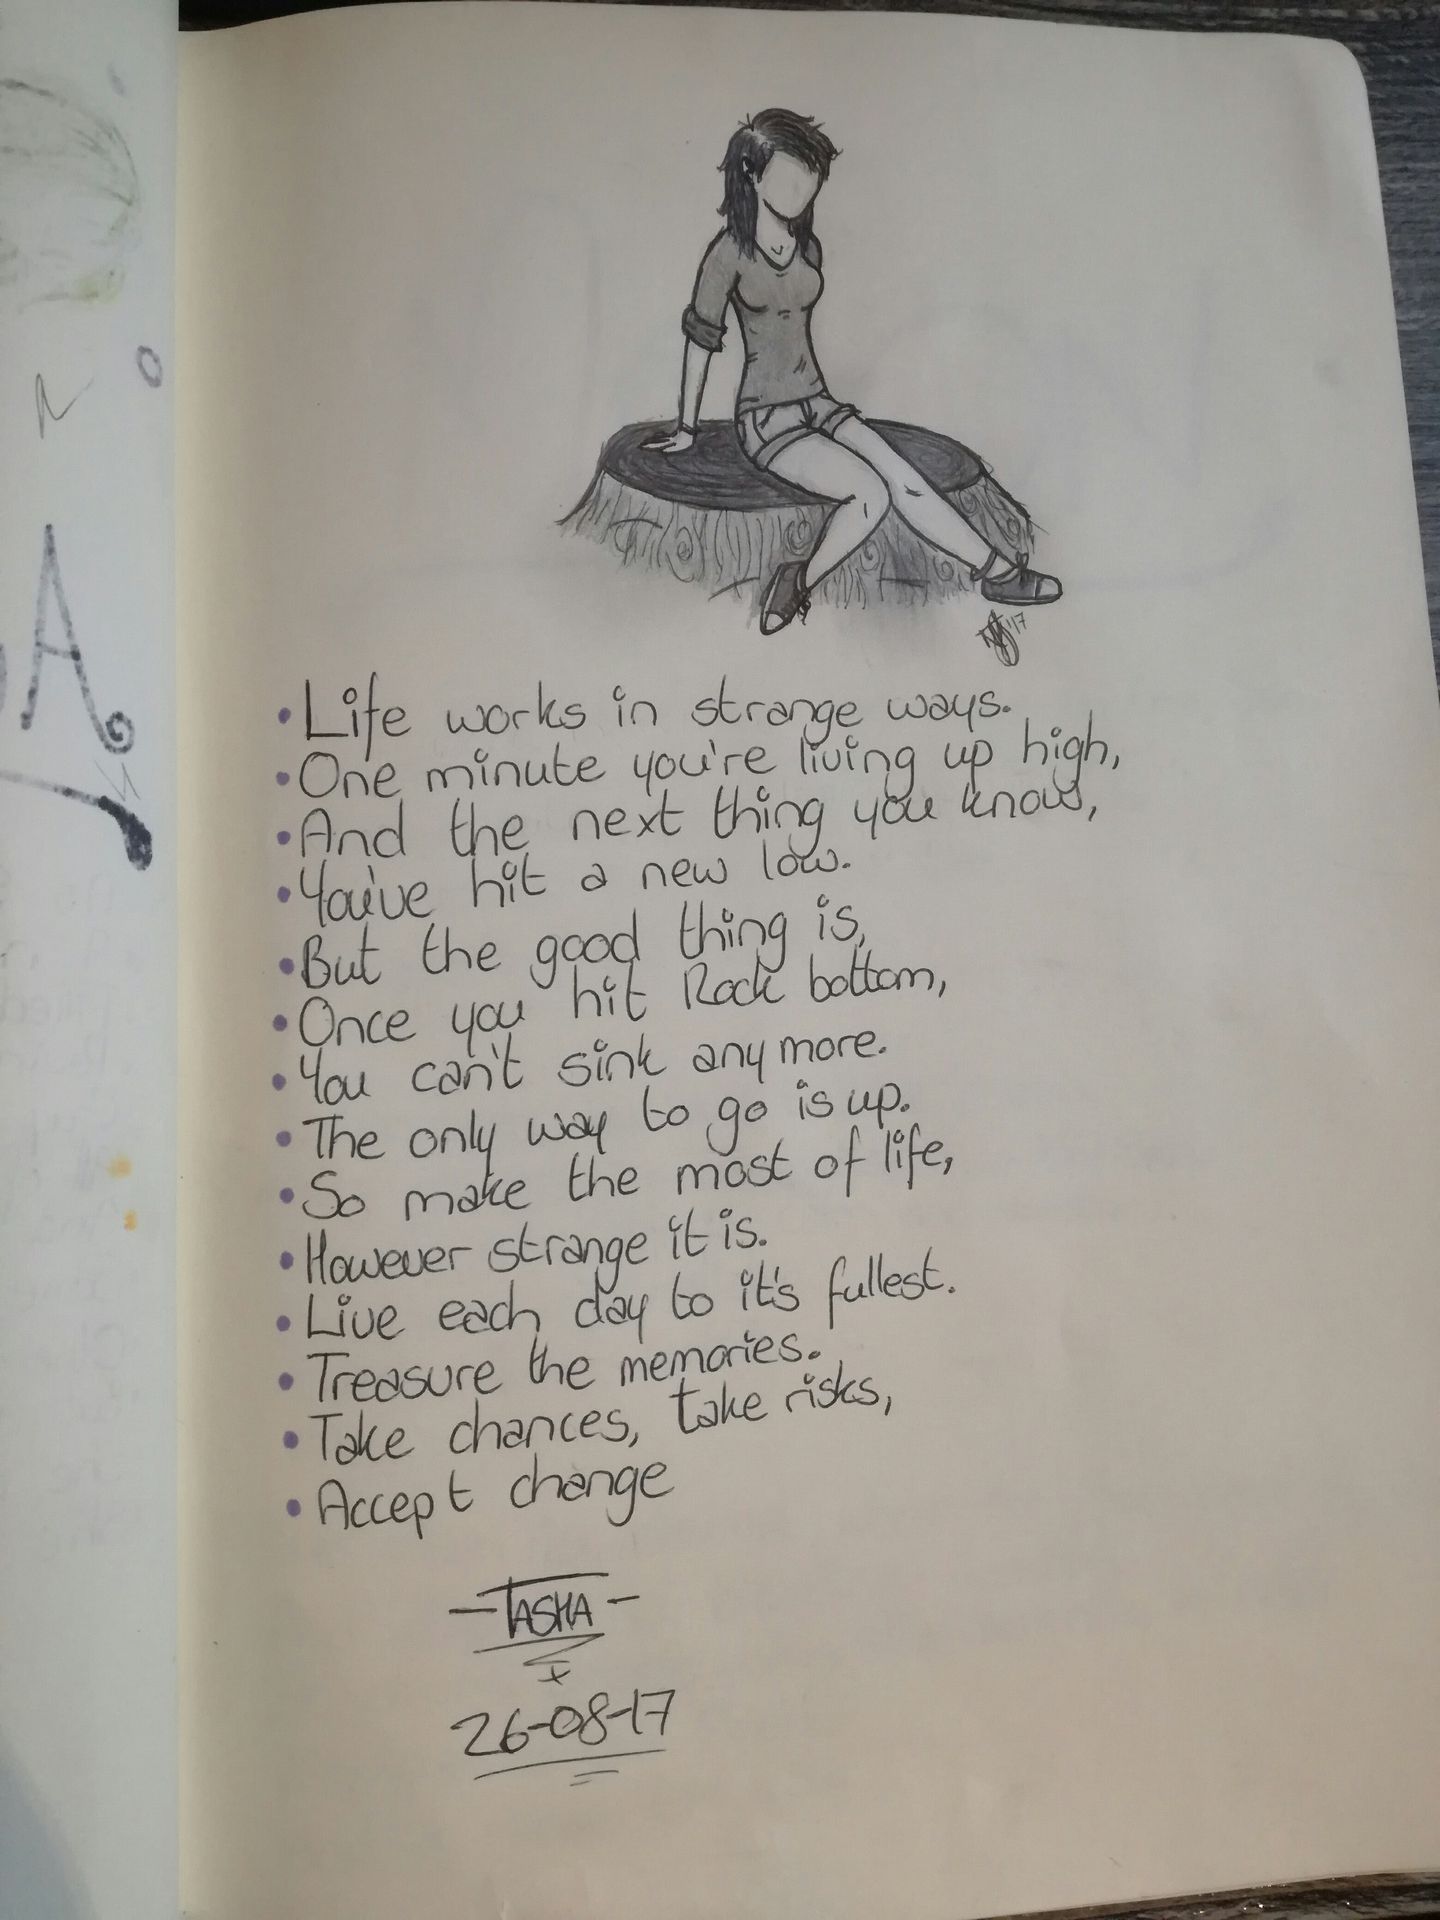 '17
• Life works in strange ways.
• One minute you're living up high,
• And the next thing you know,
• You've hit a new low.
• But the good thing is,
• Once you hit Rock bottom,
• You can't sink anymore.
• The only way to go is up.
• So make the most of life,
• However strange it is.
• Live each day to it's fullest.
• Treasure the memories.
• Take chances, take risks,
• Accept change
- TASHA -
26-08-17
A